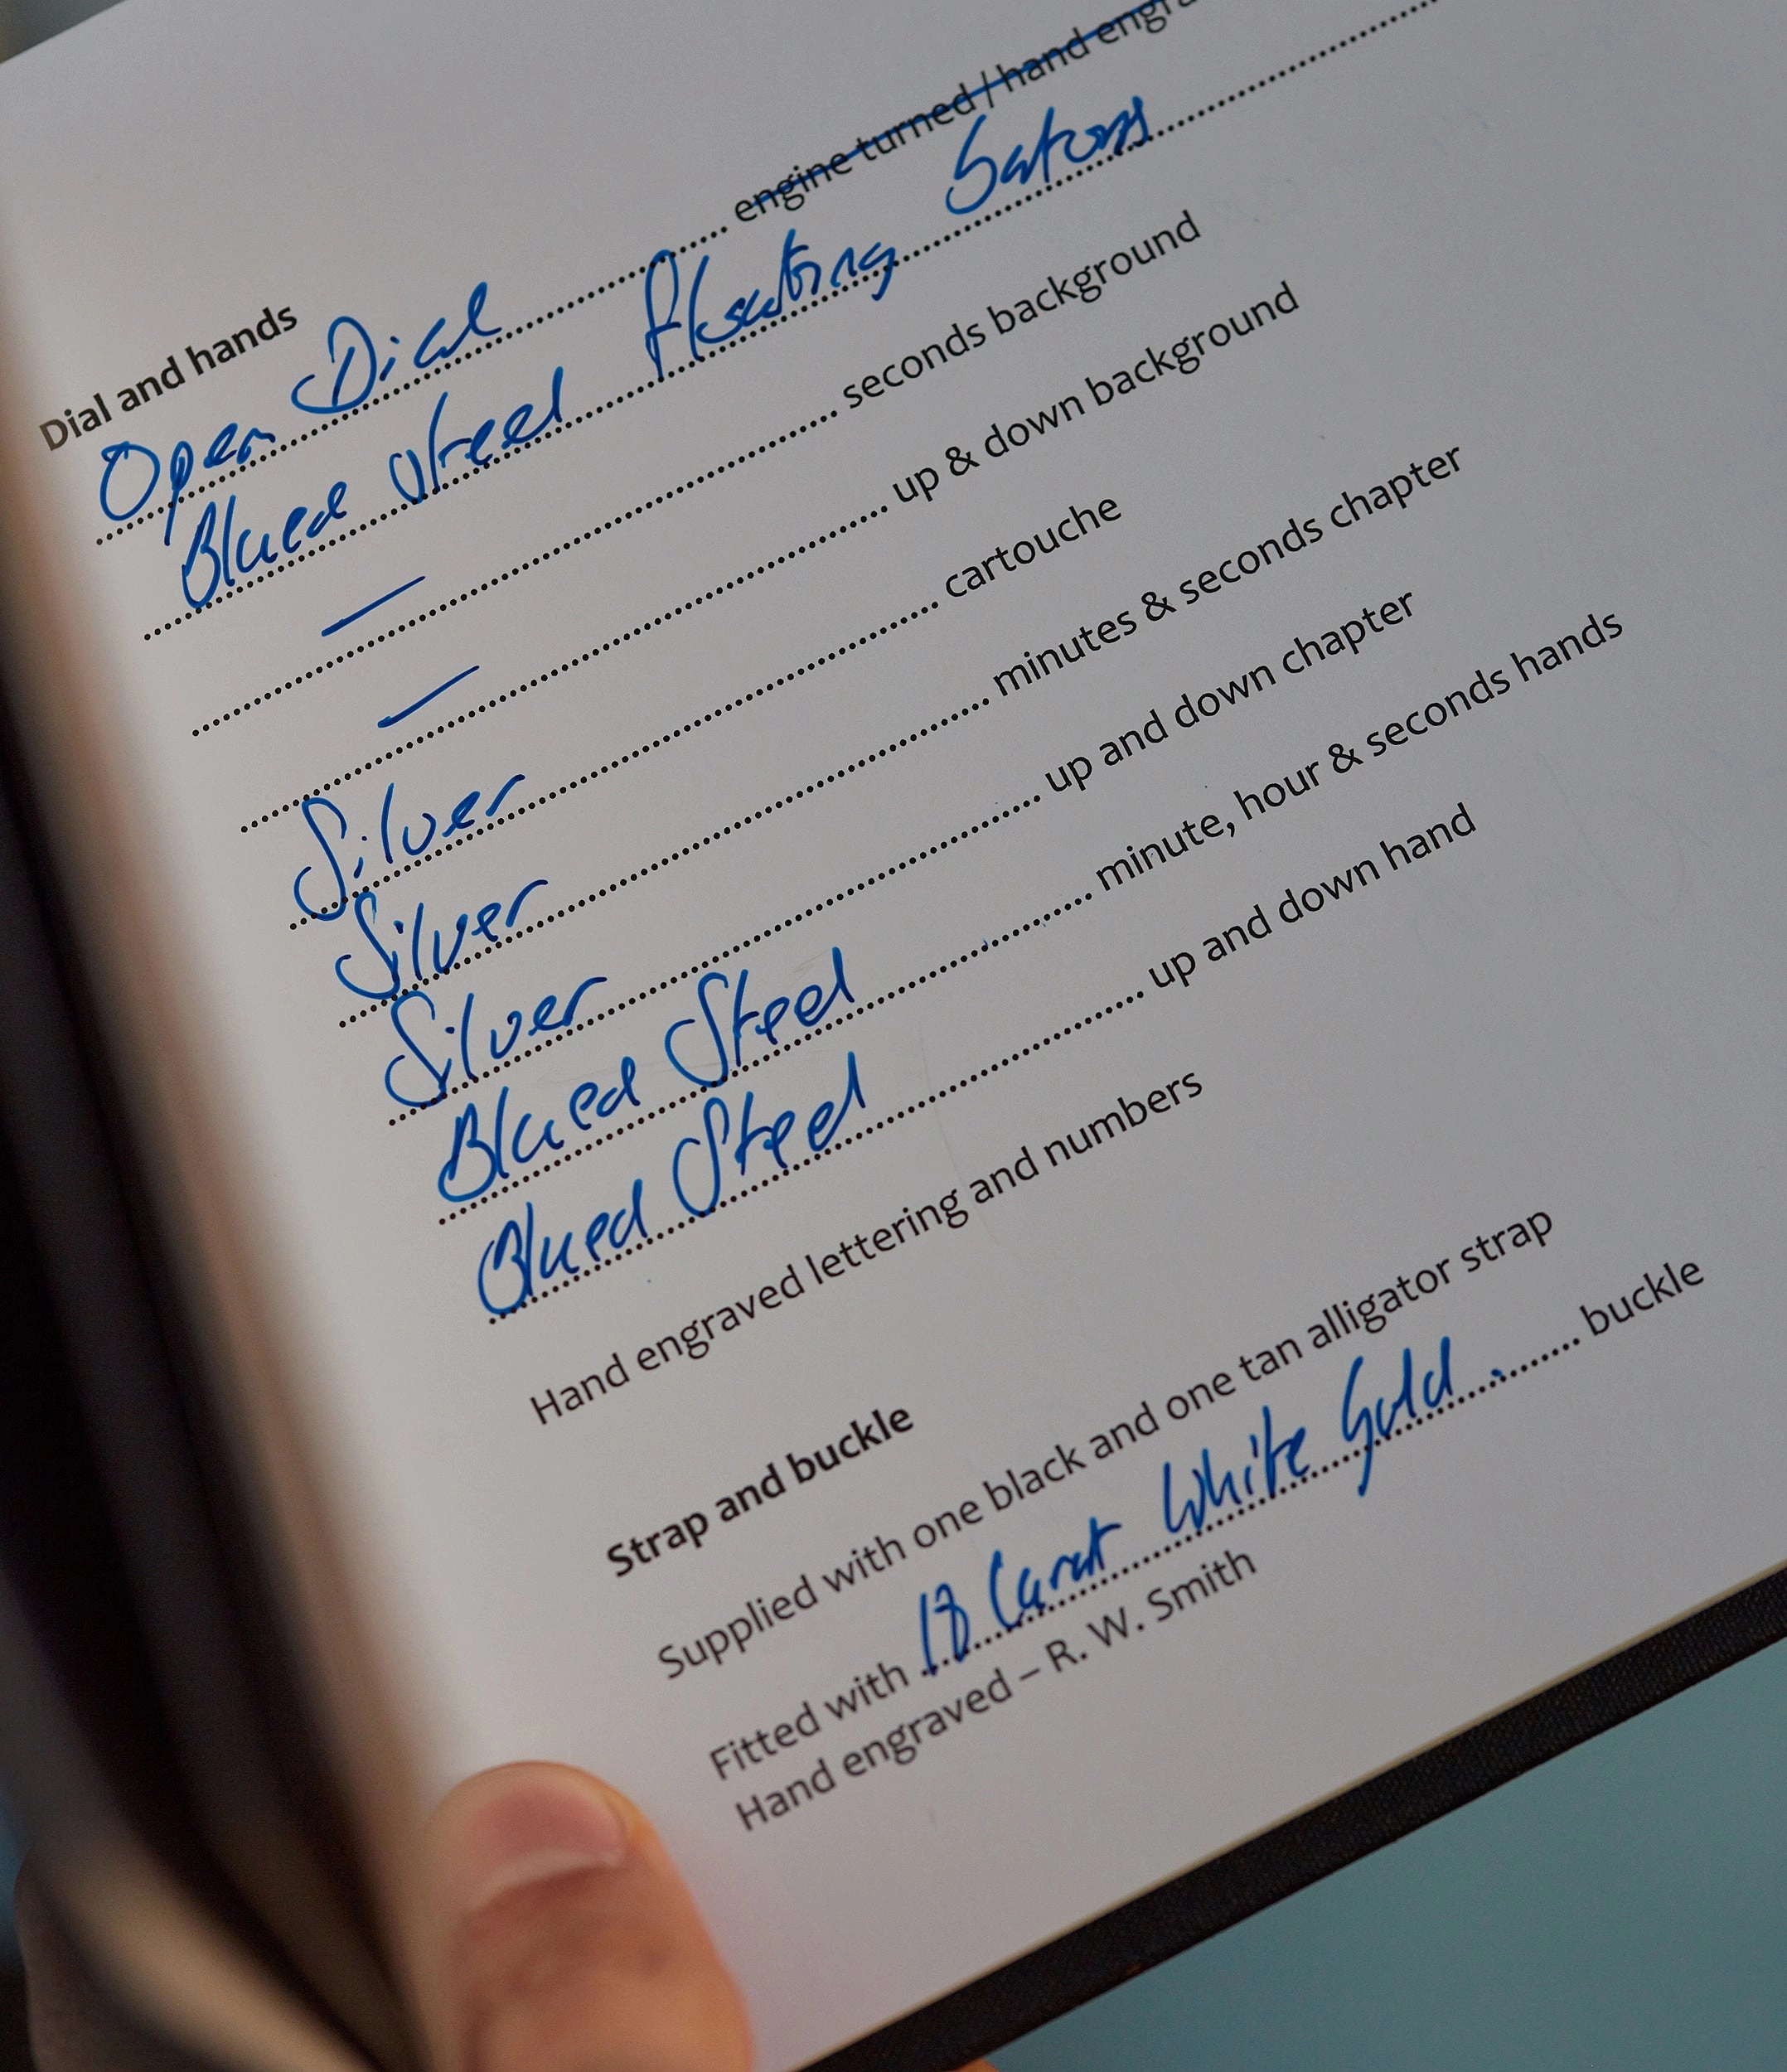 Dial and hands
Open Dial engine turned / hand
Blued Steel floating
— seconds background
— up & down background
Silver cartouche
Silver minutes & seconds chapter
Silver up and down chapter
Blued Steel minute, hour & seconds hands
Blued Steel up and down hand
Hand engraved lettering and numbers
Strap and buckle
Supplied with one black and one tan alligator strap
Fitted with 18 Carat White Gold buckle
Hand engraved – R. W. Smith